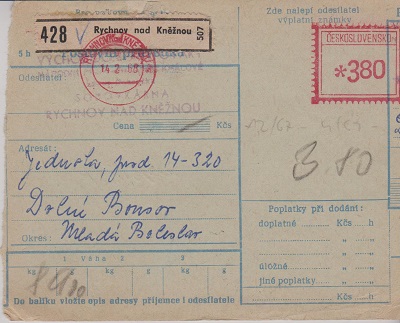 428 V Rychnov nad Kněžnou 507
Zde nalepí odesílatel
výplatní známky
ČESKOSLOVENSKO
*380
5 h
RYCHNOV N. KNĚŽNOU
14.2.68
Odesílatel:
RYCHNOV NAD KNĚŽNOU
Cena Kčs
Adresát:
Jednota, prod. 14-320
Dolní Bousov
Okres: Mladá Boleslav
3.80
Poplatky při dodání:
doplatné Kčs h
„ „
úložné „ „
jiné poplatky „ „
1 Váha 2
kg g kg g kg g
Do balíku vložte opis adresy příjemce i odesílatele